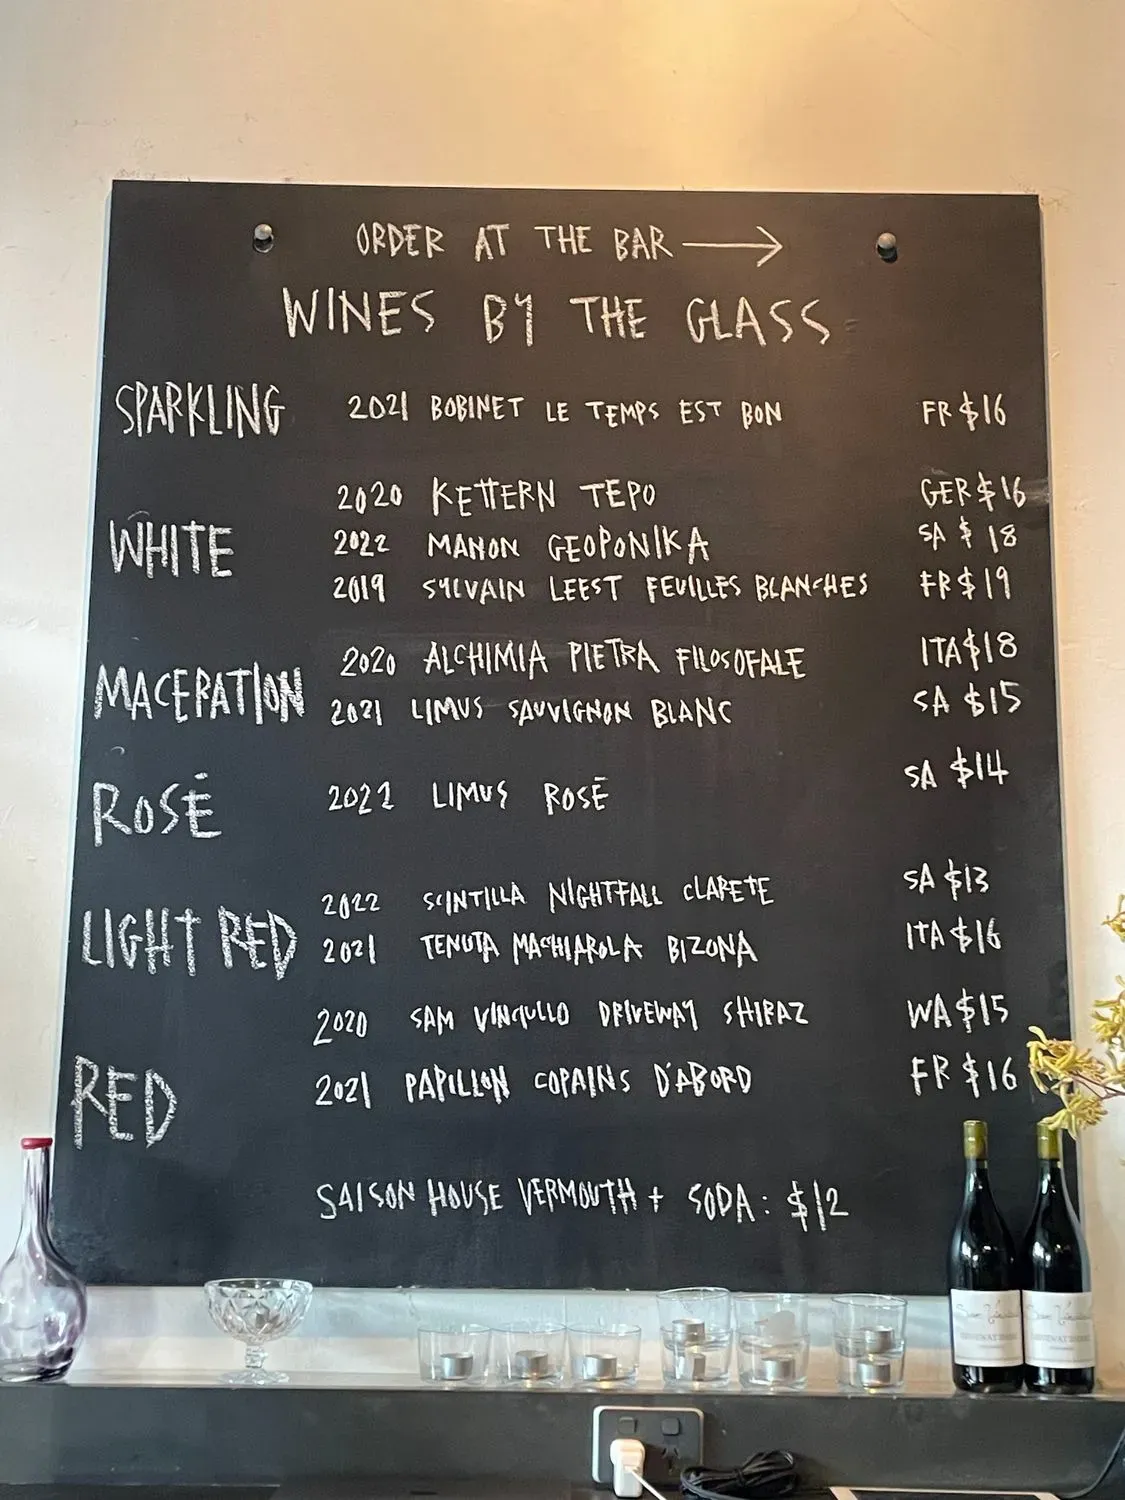 ORDER AT THE BAR →
WINES BY THE GLASS
SPARKLING 2021 BOBINET LE TEMPS EST BON FR $16
WHITE
2020 KETTERN TEPO GER $16
2022 MANON GEOPONIKA SA $18
2019 SYLVAIN LEEST FEUILLES BLANCHES FR $19
MACERATION
2020 ALCHIMIA PIETRA FILOSOFALE ITA $18
2021 LIMUS SAUVIGNON BLANC SA $15
ROSÉ 2022 LIMUS ROSÉ SA $14
LIGHT RED
2022 SCINTILLA NIGHTFALL CLARETE SA $13
2021 TENUTA MACCHIAROLA BIZONA ITA $16
RED
2020 SAM VINCIULLO DRIVEWAY SHIRAZ WA $15
2021 PAPILLON COPAINS D'ABORD FR $16
SAISON HOUSE VERMOUTH + SODA: $12